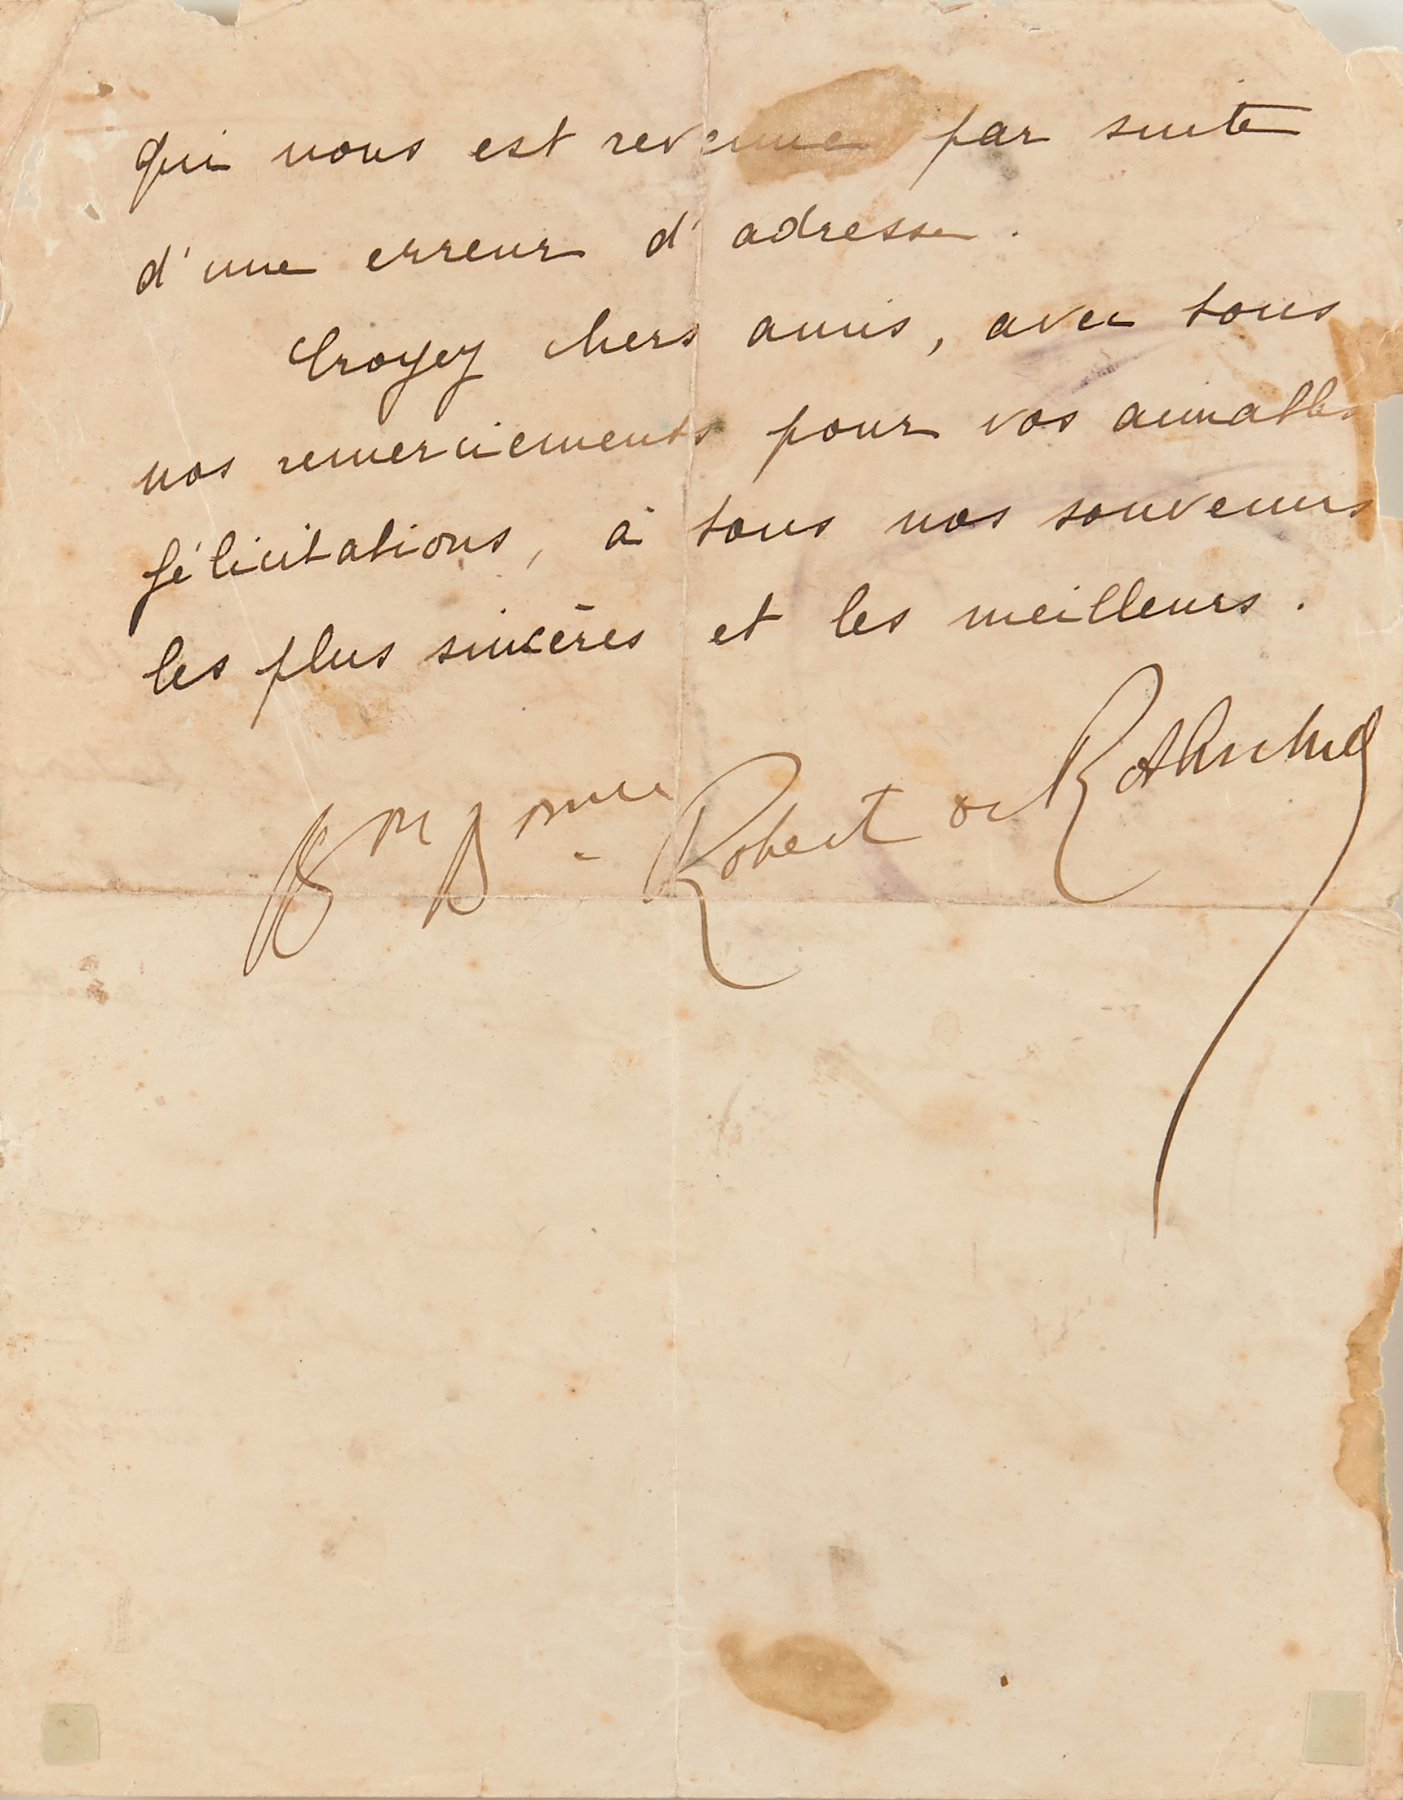 qui nous est revenue par suite
d'une erreur d'adresse.
Croyez chers amis, avec tous
nos remerciements pour vos aimables
félicitations, à tous nos souvenirs
les plus sincères et les meilleurs.
Bon Bonne Robert de Rothschild